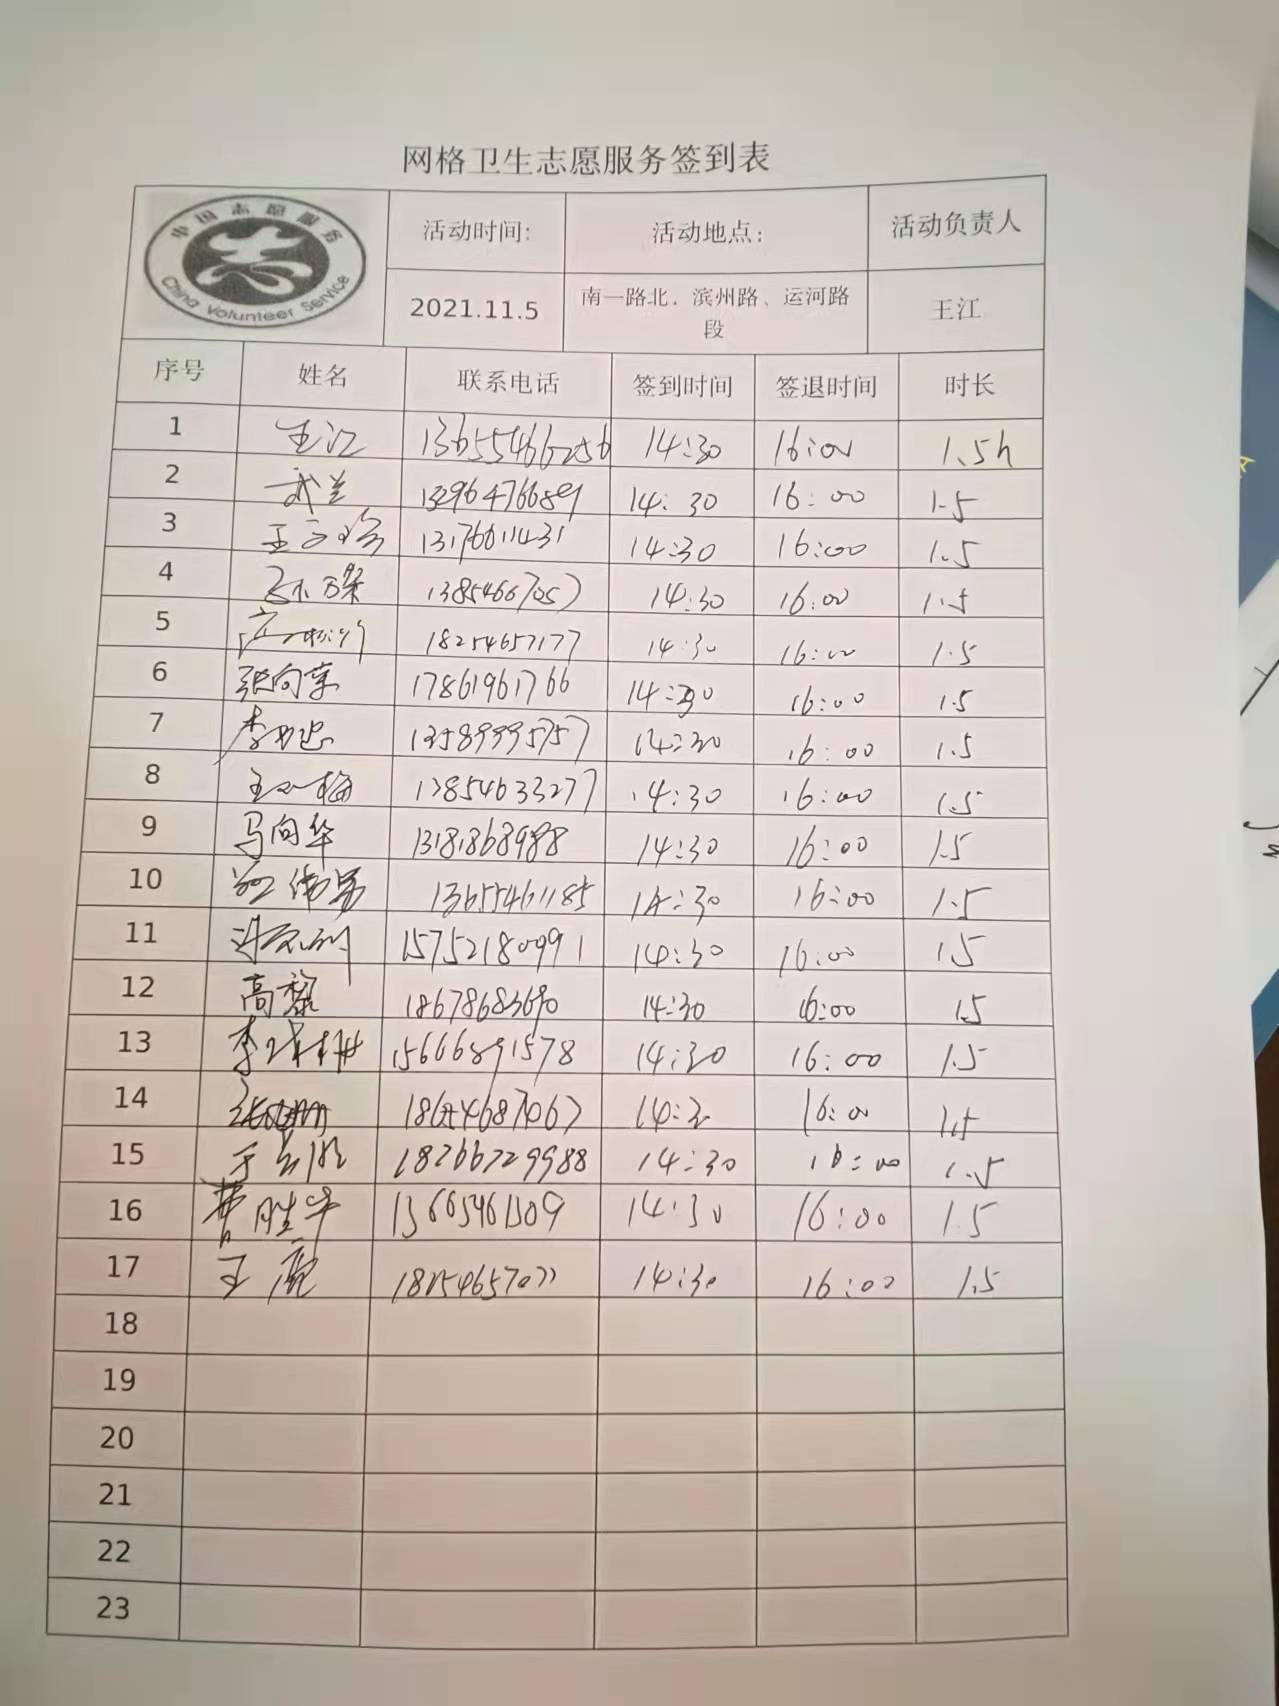 网格卫生志愿服务签到表
中国志愿服务
China Volunteer Service
活动时间: 活动地点: 活动负责人
2021.11.5 南一路北、滨州路、运河路段 王江
序号 姓名 联系电话 签到时间 签退时间 时长
1 王江 13655466256 14:30 16:00 1.5h
2 武兰 13296476689 14:30 16:00 1.5
3 13176611431 14:30 16:00 1.5
4 14:30 16:00 1.5
5 18254657177 14:30 16:00 1.5
6 张向荣 17861961766 14:30 16:00 1.5
7 13589995757 14:30 16:00 1.5
8 13854633277 14:30 16:00 1.5
9 马向华 13181868988 14:30 16:00 1.5
10 13655461185 14:30 16:00 1.5
11 15752180991 14:30 16:00 1.5
12 高黎 18678683690 14:30 16:00 1.5
13 15666891578 14:30 16:00 1.5
14 16:00 1.5
15 18266729988 14:30 16:00 1.5
16 曹胜华 13665461309 14:30 16:00 1.5
17 14:30 16:00 1.5
18
19
20
21
22
23